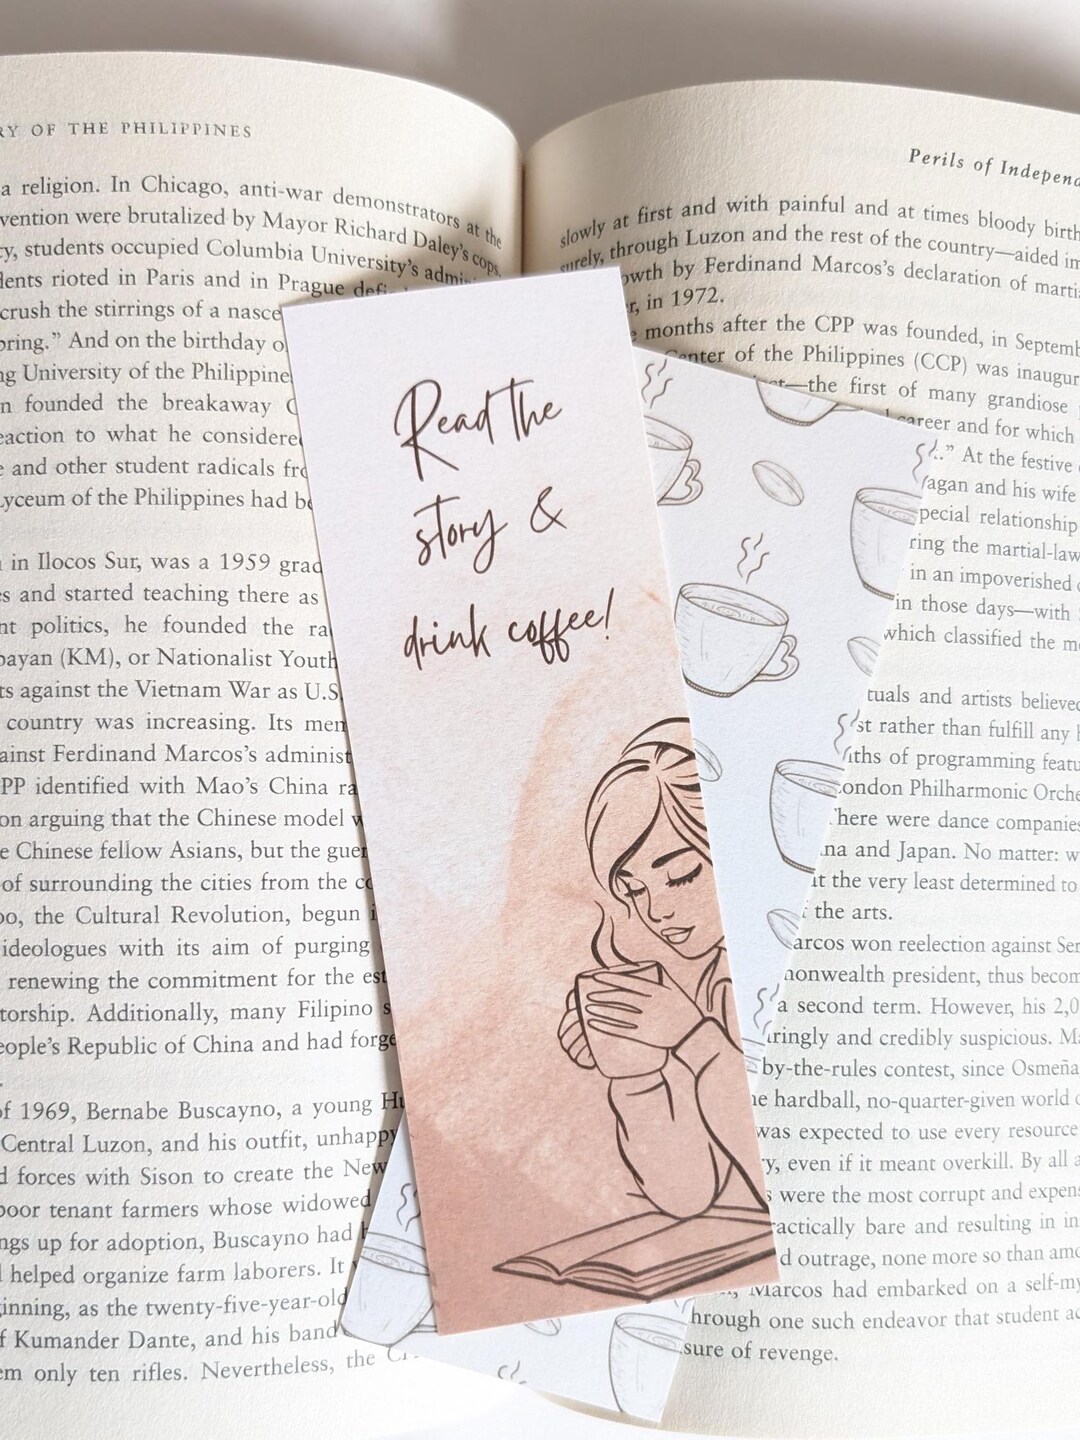 RY OF THE PHILIPPINES
a religion. In Chicago, anti-war demonstrators at the
vention were brutalized by Mayor Richard Daley's cops.
students occupied Columbia University's
rioted in Paris and in Prague
crush the stirrings of a
And on the birthday
University of the
founded the breakaway
to what he
and other student radicals
Lyceum of the Philippines had
in Ilocos Sur, was a 1959
and started teaching there as
politics, he founded the
(KM), or Nationalist Youth
against the Vietnam War as U.S.
country was increasing. Its
Ferdinand Marcos's
identified with Mao's China
on arguing that the Chinese model
Chinese fellow Asians, but the
of surrounding the cities from the
the Cultural Revolution, begun
ideologues with its aim of purging
renewing the commitment for the
Additionally, many Filipino
People's Republic of China and had
of 1969, Bernabe Buscayno, a young
Central Luzon, and his outfit,
forces with Sison to create the New
poor tenant farmers whose widowed
up for adoption, Buscayno had
helped organize farm laborers. It
as the twenty-five-year-old
Kumander Dante, and his band
only ten rifles. Nevertheless, the
Read the
story &
drink coffee!
Perils of
slowly at first and with painful and at times bloody
surely, through Luzon and the rest of the country—aided
by Ferdinand Marcos's declaration of
in 1972.
months after the CPP was founded, in
Center of the Philippines (CCP) was
the first of many grandiose
career and for which
At the festive
and his wife
special relationship
the martial-law
in an impoverished
in those days—with
which classified the
and artists believed
rather than fulfill any
of programming
London Philharmonic
There were dance companies
and Japan. No matter:
the very least determined to
the arts.
Marcos won reelection against
president, thus
a second term. However, his
and credibly suspicious.
by-the-rules contest, since Osmeña
hardball, no-quarter-given world
was expected to use every resource
even if it meant overkill. By all
were the most corrupt and
practically bare and resulting in
outrage, none more so than
Marcos had embarked on a
through one such endeavor that student
sure of revenge.